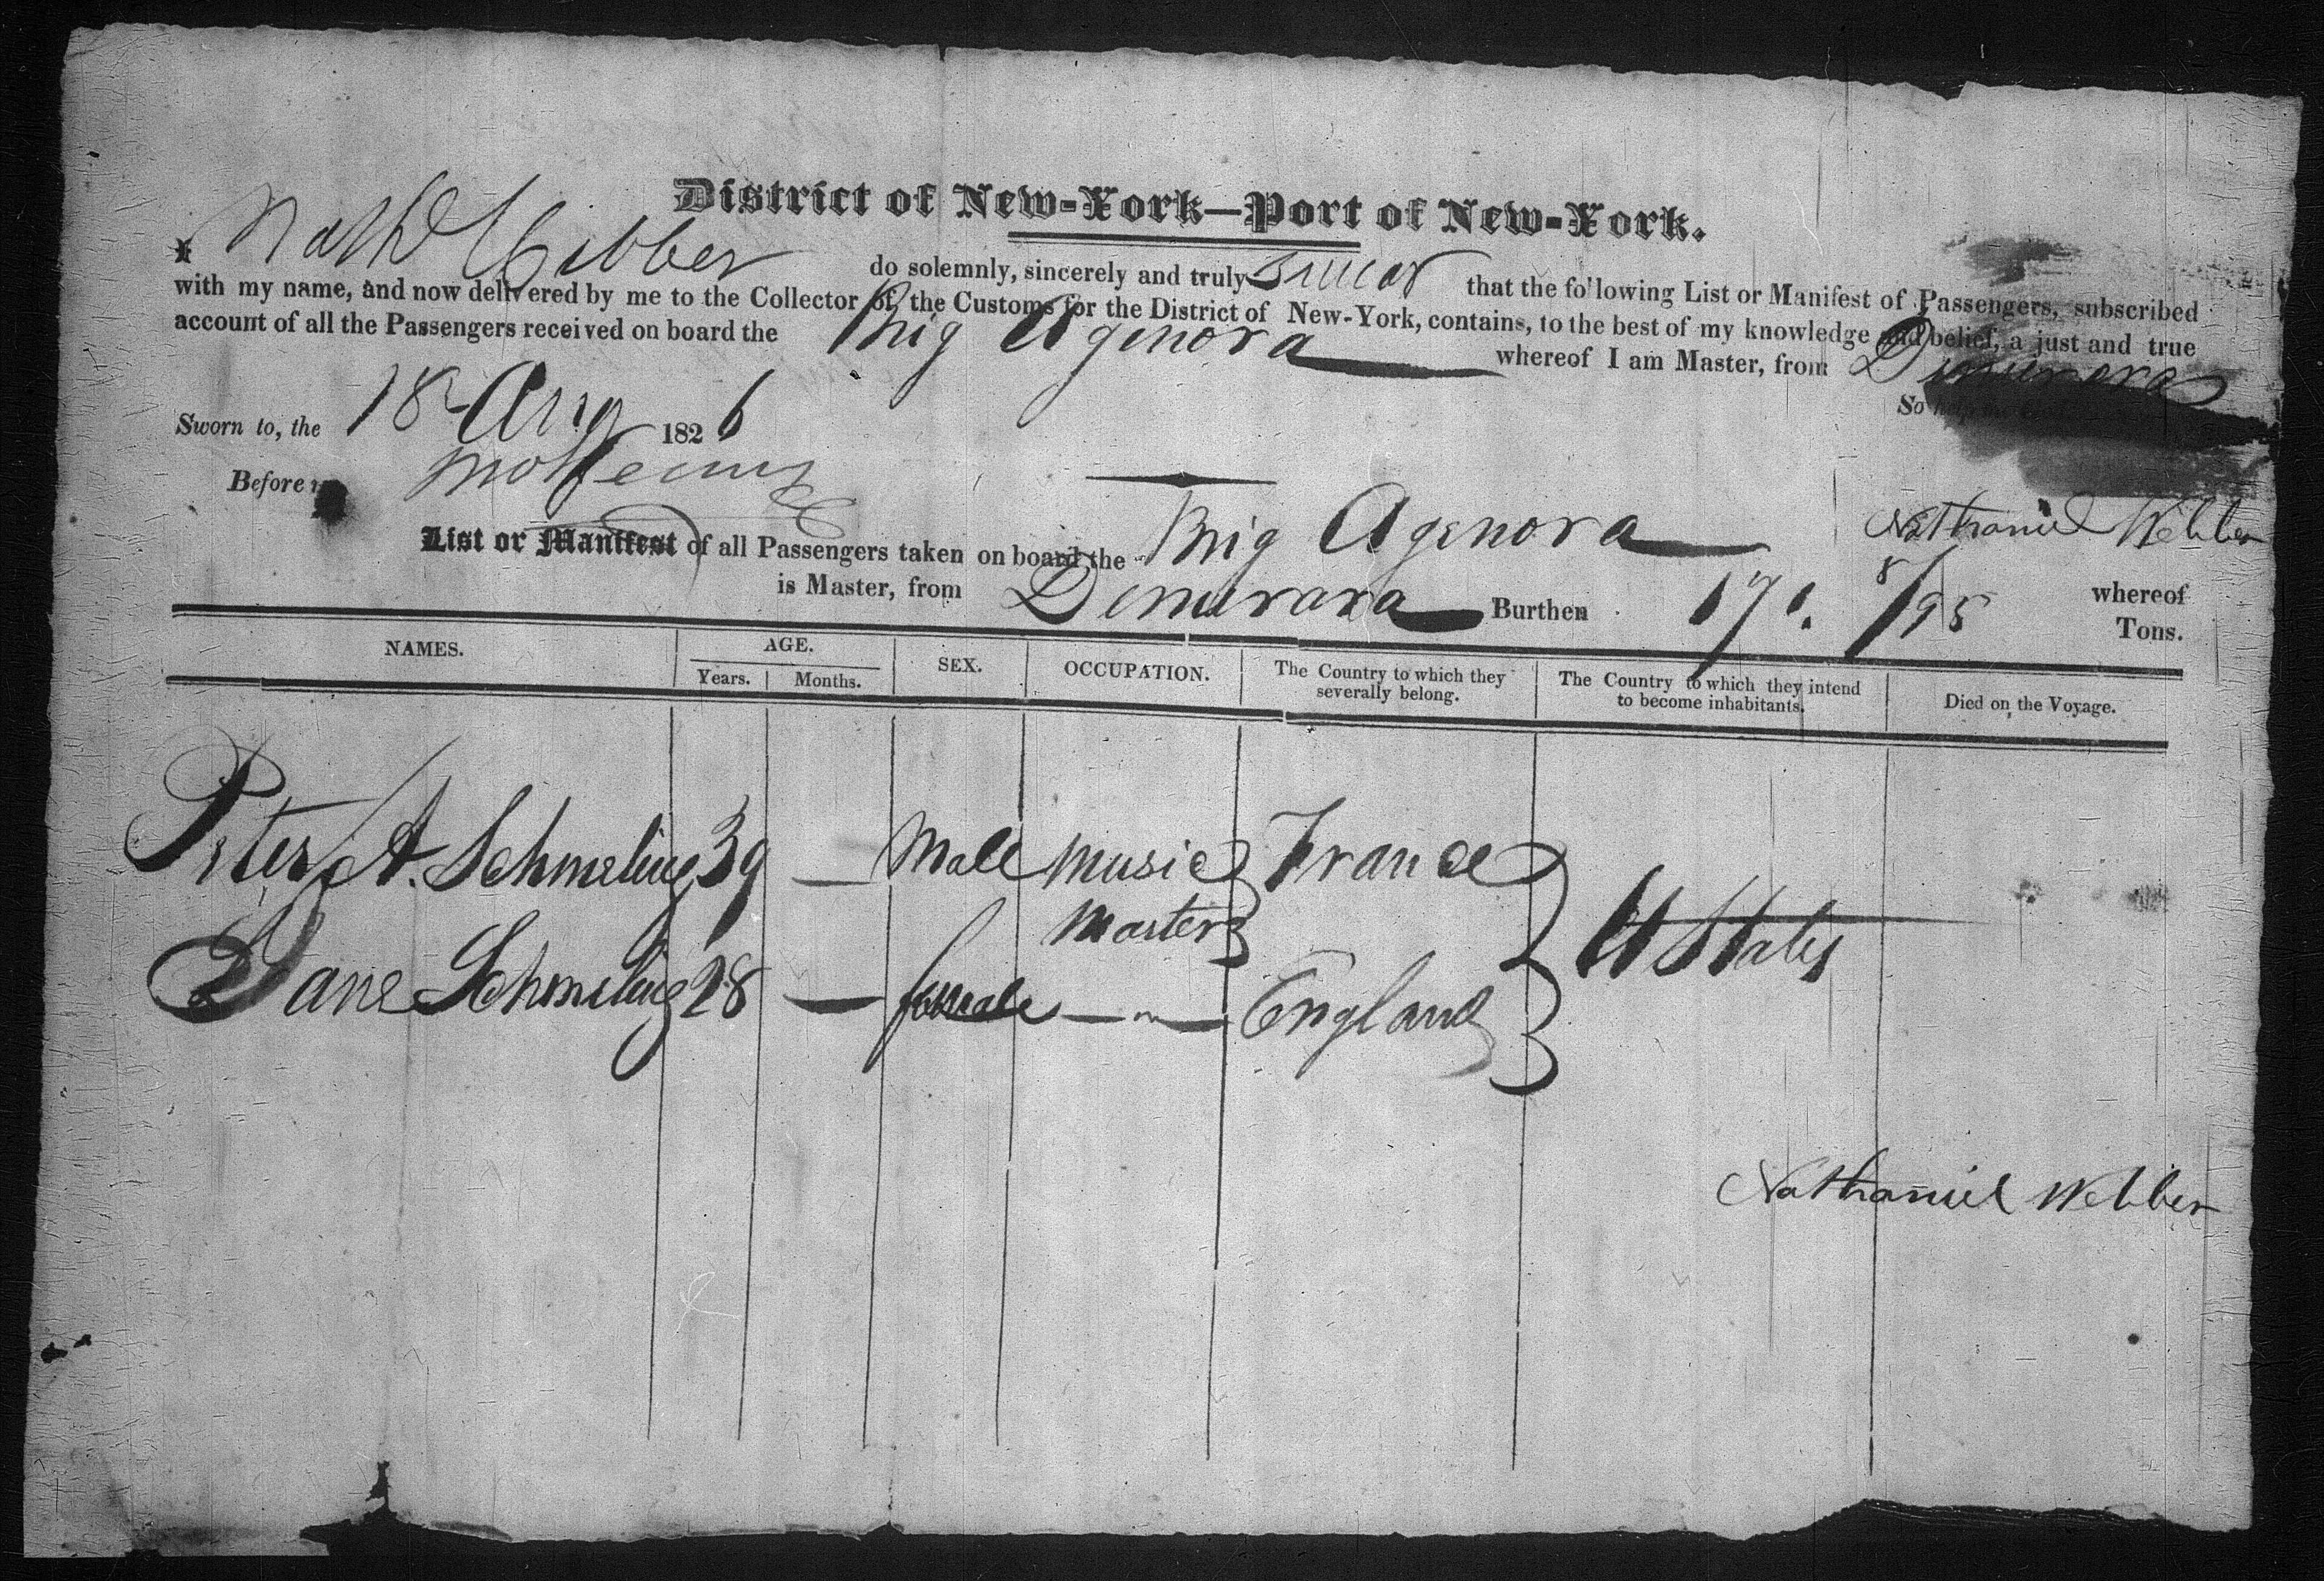 District of New-York—Port of New-York.
I Nathl Webber do solemnly, sincerely and truly swear that the following List or Manifest of Passengers, subscribed
with my name, and now delivered by me to the Collector of the Customs for the District of New-York, contains, to the best of my knowledge and belief, a just and true
account of all the Passengers received on board the Brig Agenora whereof I am Master, from Demerara
So help me
Sworn to, the 18 Aug 1826
Before
Nathaniel Webber
List or Manifest of all Passengers taken on board the Brig Agenora whereof
is Master, from Demerara Burthen 171. 8/95 Tons.
NAMES. AGE. SEX. OCCUPATION. The Country to which they severally belong. The Country to which they intend to become inhabitants. Died on the Voyage.
Years. Months.
Peter A. Schmeling 39 — Male Music Master France
U States
Jane Schmeling 28 — female — " — England
Nathaniel Webber